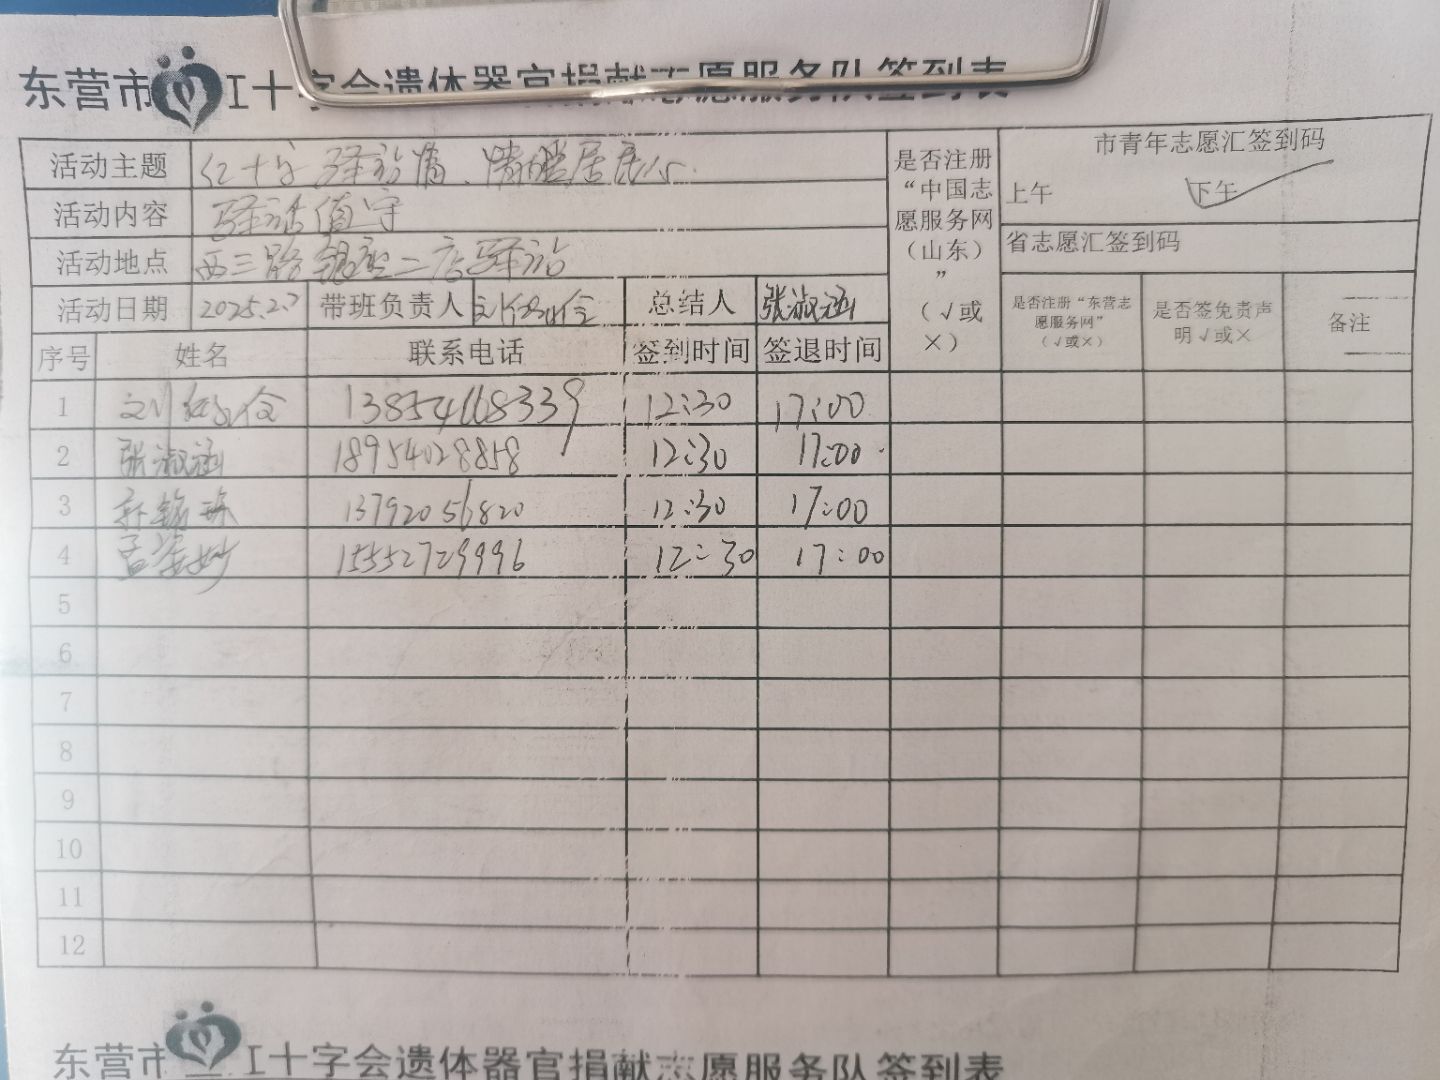 东营市红十字会遗体器官捐献志愿服务队签到表
活动主题 红十字驿站情、情暖居民心
活动内容 驿站值守
活动地点 西三路银座二店驿站
活动日期 2025.2.7 带班负责人 总结人 张淑涵
是否注册“中国志愿服务网（山东）”（√或×）
市青年志愿汇签到码
上午 下午 √
省志愿汇签到码
是否注册“东营志愿服务网”（√或×） 是否签免责声明√或× 备注
序号 姓名 联系电话 签到时间 签退时间
1 刘 13854668339 12:30 17:00
2 张淑涵 18954028858 12:30 17:00
3 13792056820 12:30 17:00
4 孟 15552729996 12:30 17:00
5
6
7
8
9
10
11
12
东营市红十字会遗体器官捐献志愿服务队签到表